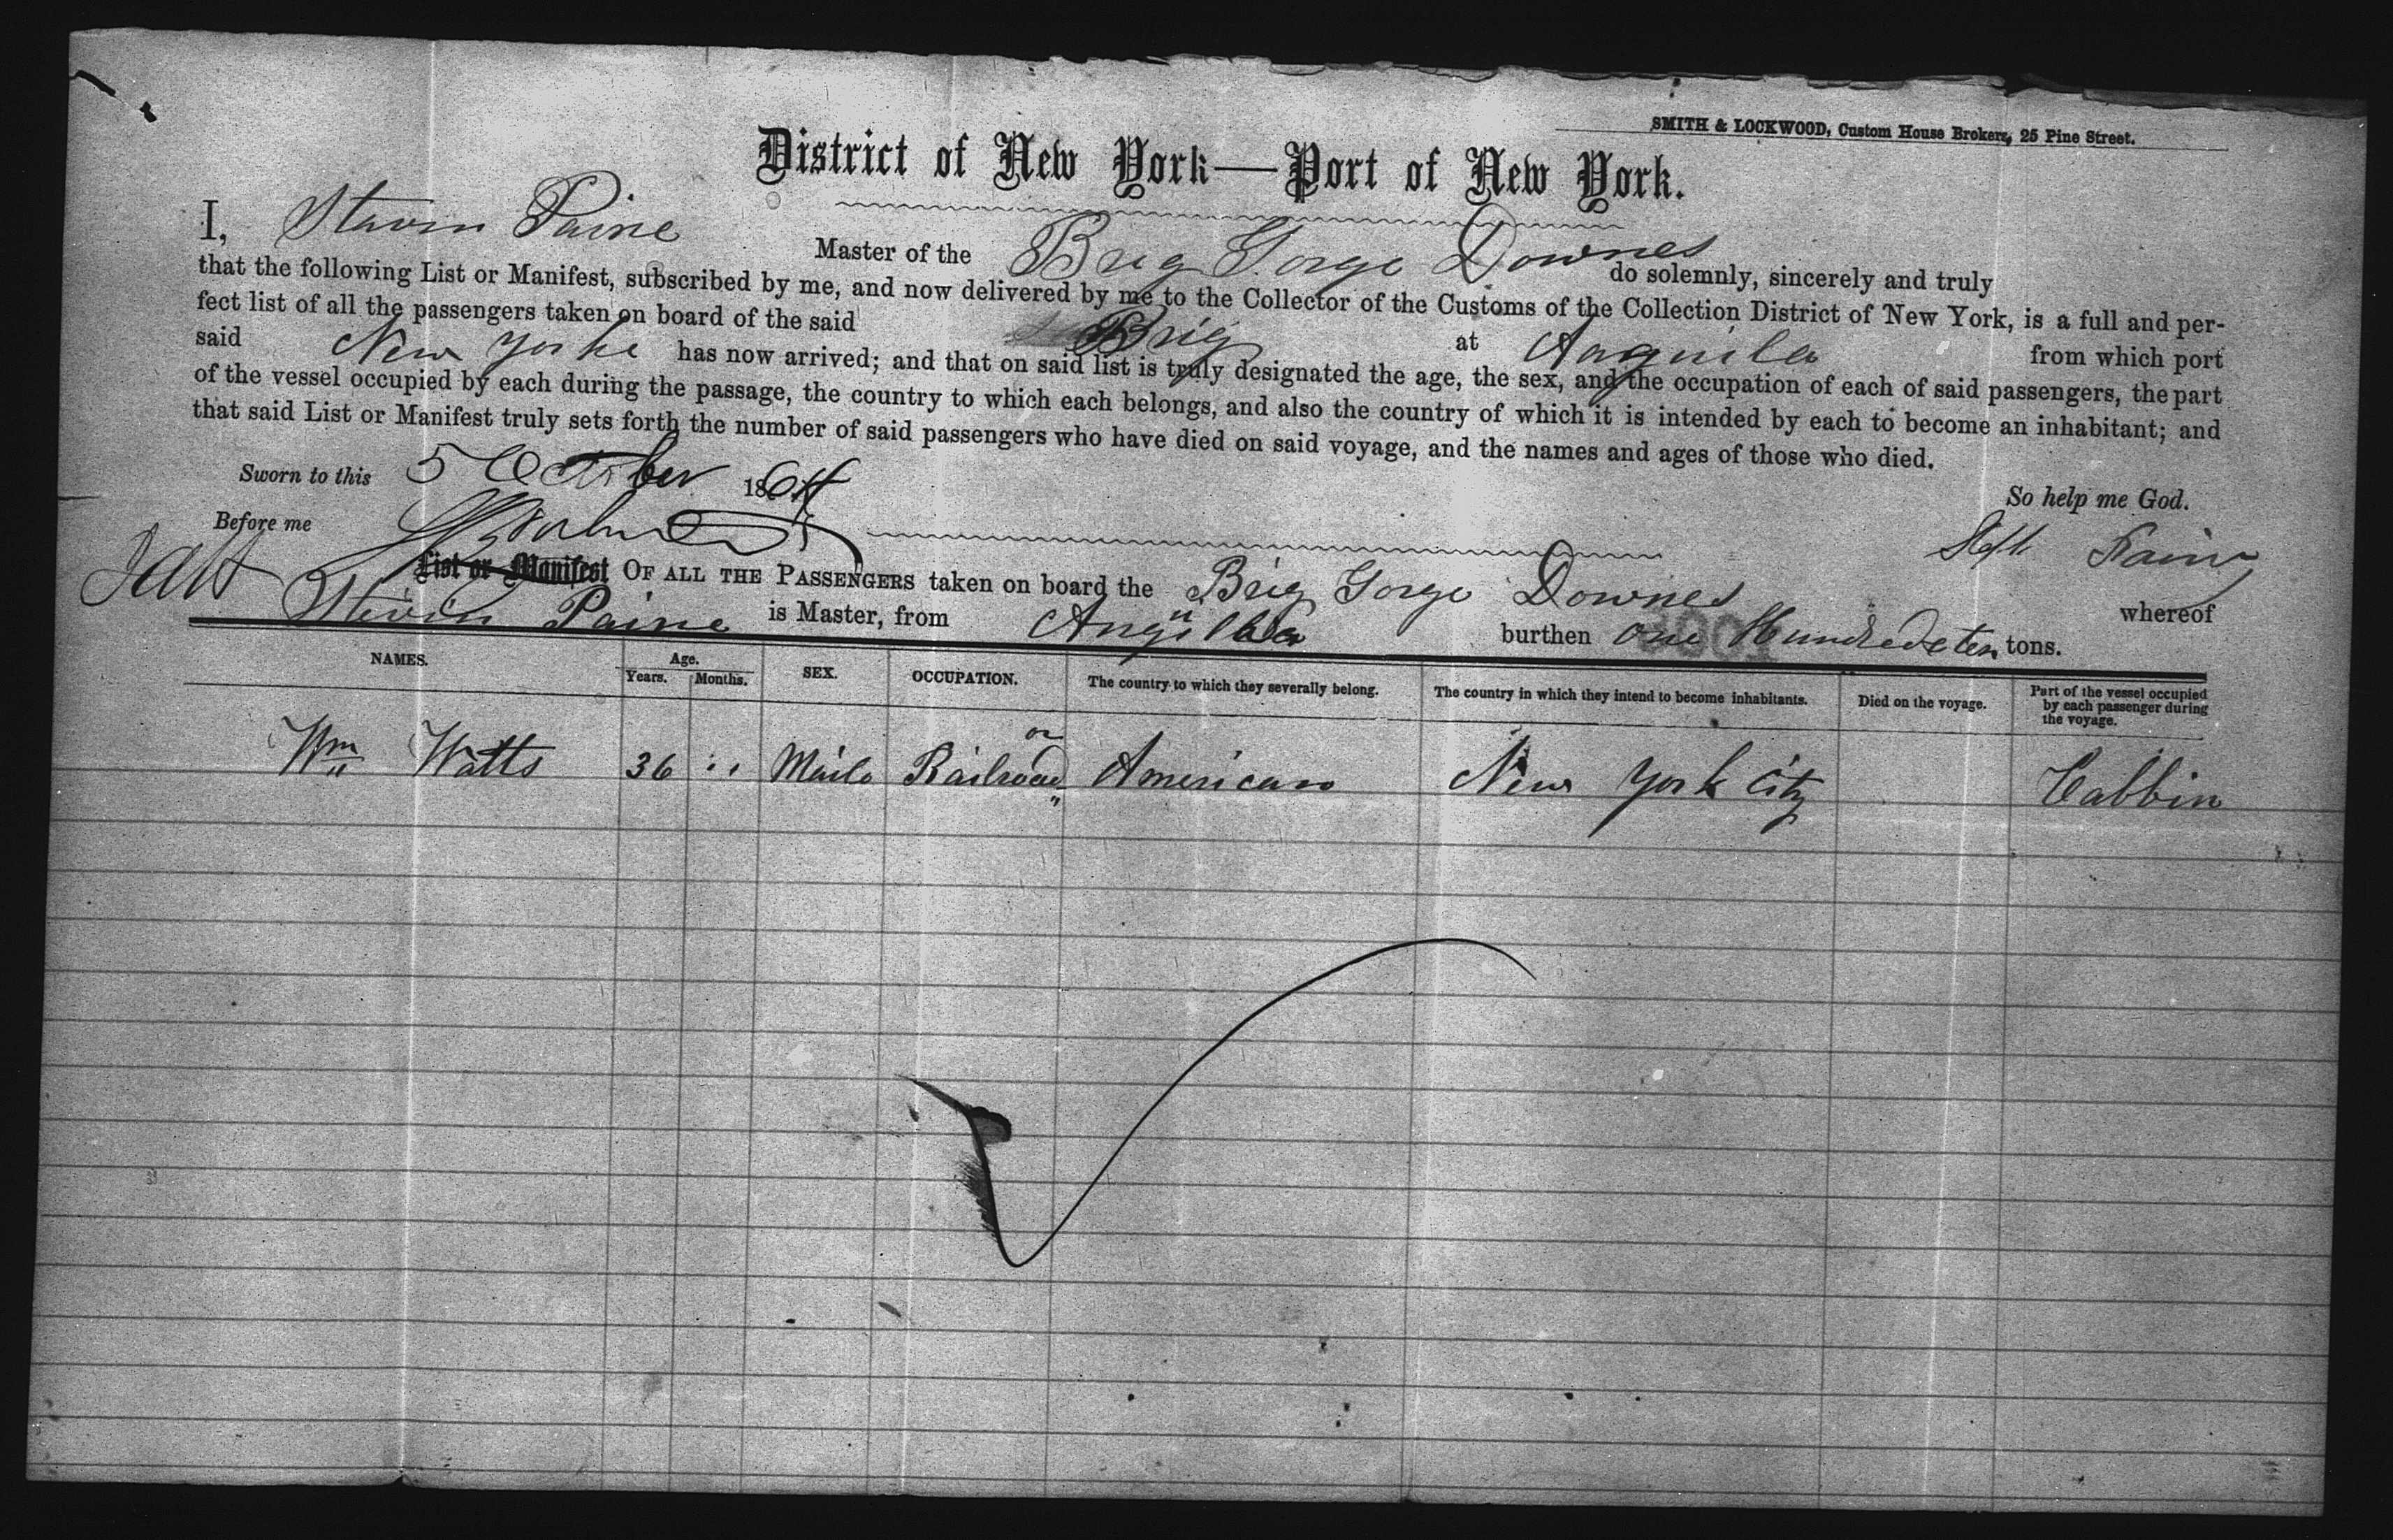 SMITH & LOCKWOOD, Custom House Brokers, 25 Pine Street.
District of New York—Port of New York.
I, Paine Master of the Brig Gorge Downes do solemnly, sincerely and truly
that the following List or Manifest, subscribed by me, and now delivered by me to the Collector of the Customs of the Collection District of New York, is a full and per-
fect list of all the passengers taken on board of the said Brig at Anguila from which port
said New Yorke has now arrived; and that on said list is truly designated the age, the sex, and the occupation of each of said passengers, the part
of the vessel occupied by each during the passage, the country to which each belongs, and also the country of which it is intended by each to become an inhabitant; and
that said List or Manifest truly sets forth the number of said passengers who have died on said voyage, and the names and ages of those who died.
Sworn to this 5 October 1864
So help me God.
Before me
List or Manifest OF ALL THE PASSENGERS taken on board the Brig Gorge Downes whereof
Paine is Master, from Anguilla burthen one Hundred & ten tons.
NAMES. Age. Years. Months. SEX. OCCUPATION. The country to which they severally belong. The country in which they intend to become inhabitants. Died on the voyage. Part of the vessel occupied by each passenger during the voyage.
Wm Watts 36 Maile on Railroad American New York City Cabbin